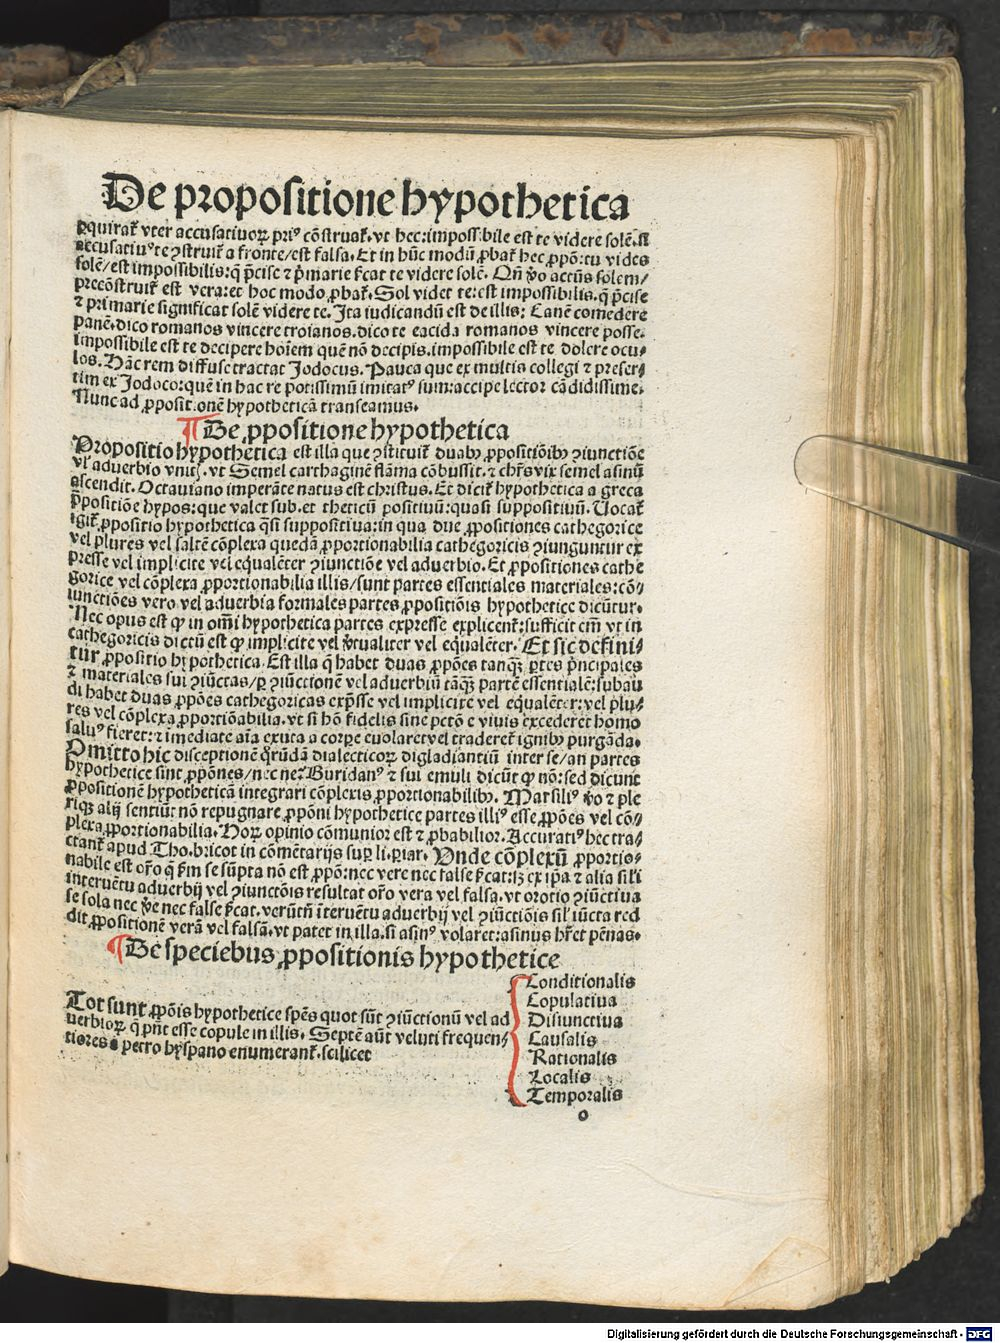 De propositione hypothetica
equirat᷑ vter accusatiuoꝝ priꝰ cōstruat᷑. vt hec: impossibile est te videre solē. si
accusatiuꝰ te ꝯstruit᷑ a fronte/est falsa. Et in hūc modū ꝓbat᷑ hec ꝓpō: tu vides
solē/est impossibilis: q̄ p̄cise ⁊ p̄marie ſc̄at te videre solē. Qn̄ v̄o actus solem/
precōstruit᷑ est vera: et hoc modo ꝓbat᷑. Sol videt te: est impossibilis. q̄ p̄cise
⁊ primarie significat solē videre te. Ita iudicandū est de illis: Canē comedere
panē. dico romanos vincere troianos. dico te eacida romanos vincere posse.
impossibile est te decipere hoīem quē nō decipis. impossibile est te dolere ocu⸗
los. Hāc rem diffuse tractat Jodocus. Pauca que ex multis collegi ⁊ preser⸗
tim ex Jodoco: quē in hac re potissimū imitatꝰ sum: accipe lector cādidissime.
Nunc ad ꝓposit.onē hypotheticā transeamus.
¶ De ꝓpositione hypothetica
Propositio hypothetica est illa que ꝯstituit᷑ duabꝫ ꝓpositiōibꝫ ꝯiunctiōe
vl' aduerbio vnit᷑. vt Semel carthaginē flāma cōbussit. ⁊ chr̄s vix semel asinū
ascendit. Octauiano imperāte natus est christus. Et dicit᷑ hypothetica a greca
p̄positiōe hypos: que valet sub. et theticū positiuū: quasi suppositiuū. Uocat᷑
igit᷑ ꝓpositio hypothetica q̄si suppositiua: in qua due ꝓpositiones cathegorice
vel plures vel saltē cōplexa quedā ꝓportionabilia cathegoricis ꝯiunguntur ex
presse vel implicite vel equalēter ꝯiunctiōe vel aduerbio. Et ꝓpositiones cathe
gorice vel cōplexa ꝓportionabilia illis/sunt partes essentiales materiales: cō⸗
iunctiōes vero vel aduerbia formales partes ꝓpositiōis hypothetice dicūtur.
Nec opus est ꝙ in om̄i hypothetica partes expresse explicent᷑: sufficit em̄ vt in
cathegoricis dictū est ꝙ implicite vel v̄tualiter vel equalēter. Et sic defini⸗
tur ꝓpositio hypothetica. Est illa q̄ habet duas ꝓpōes tanqꝫ ꝑtes p̄ncipales
⁊ materiales sui ꝯiūctas/ꝑ ꝯiūctionē vel aduerbiū tāqꝫ partē essentialē: subau
di habet duas ꝓpōes cathegoricas exp̄sse vel implicite vel equalēter: vel plu⸗
res vel cōplexa ꝓportiōabilia. vt si hō fidelis sine pctō e viuis excederet homo
saluꝰ fieret: ⁊ imediate aīa exuta a corꝑe euolaret vel traderet᷑ ignibꝫ purgāda.
Omitto hic disceptionē q̄rūdā dialecticoꝝ digladiantiū inter se/an partes
hypothetice sint ꝓpōnes/nec ne? Buridanꝰ ⁊ sui emuli dicūt ꝙ nō: sed dicunt
ꝓpositionē hypotheticā integrari cōplexis ꝓportionabilibꝫ. Marsiliꝰ v̄o ⁊ ple
riqꝫ alij sentiūt nō repugnare ꝓpōni hypothetice partes illiꝰ esse ꝓpōes vel cō⸗
plexa ꝓportionabilia. Hoꝝ opinio cōmunior est ⁊ ꝓbabilior. Accuratiꝰ hec tra⸗
ctant᷑ apud Tho. bricot in cōmētarijs suꝑ li. ꝑiar. Unde cōplexū ꝓportio⸗
nabile est oro q̄ ſm se sūpta nō est ꝓpō: nec vere nec false ſc̄at: lꝫ ex ip̄a ⁊ alia sil'i
interuētu aduerbij vel ꝯiunctōis resultat oro vera vel falsa. vt orotio ꝯiūctiua
se sola nec v̄e nec false ſc̄at. verūtn̄ īteruētu aduerbij vel ꝯiūctiōis sil' iūcta red
dit ꝓpositionē verā vel falsā. vt patet in illa. si asinꝰ volaret: asinus hr̄et pēnas.
¶ De speciebus ꝓpositionis hypothetice
Tot sunt ꝓpōis hypothetice spēs quot sūt ꝯiūctionū vel ad
uerbioꝝ q̄ pn̄t esse copule in illis. Septē aūt veluti frequen⸗
tiores a petro hyspano enumerant᷑. scilicet
Conditionalis
Copulatiua
Disiunctiua
Causalis
Rationalis
Localis
Temporalis
o
Digitalisierung gefördert durch die Deutsche Forschungsgemeinschaft - DFG